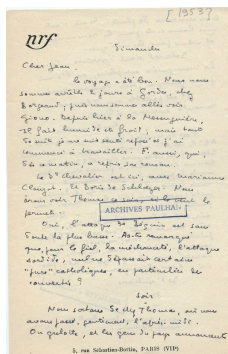 [1953]
nrf
Dimanche
Cher Jean,
le voyage a été bon. Nous nous
sommes arrêtés 2 jours à Gordes, chez
, puis nous sommes allés voir
Giono. Depuis hier à La Messuguière.
Il fait humide et froid, mais nous
sommes reposés et j'ai
commencé à travailler. Francis, qui,
ce matin, a repris son roman.
Le Dr Chevalier est ici, avec Marianne
Clouzot, le Boris de Schloezer. Nous
irons voir Thomas ce soir, si le
permet.
ARCHIVES PAULHAN
Oui, l'attaque de Béguin est sans
doute la plus basse. As-tu remarqué
que, pour le fiel, la méchanceté, l'attaque
sordide, nul ne dépassait certains
"purs" catholiques, en particulier de
convertis ?
soir
Nous sortons de chez Thomas, où nous
avons passé, gentiment, l'après-midi.
On gelotte, et les gens du pays annoncent
5, rue Sébastien-Bottin, PARIS (VIIe)